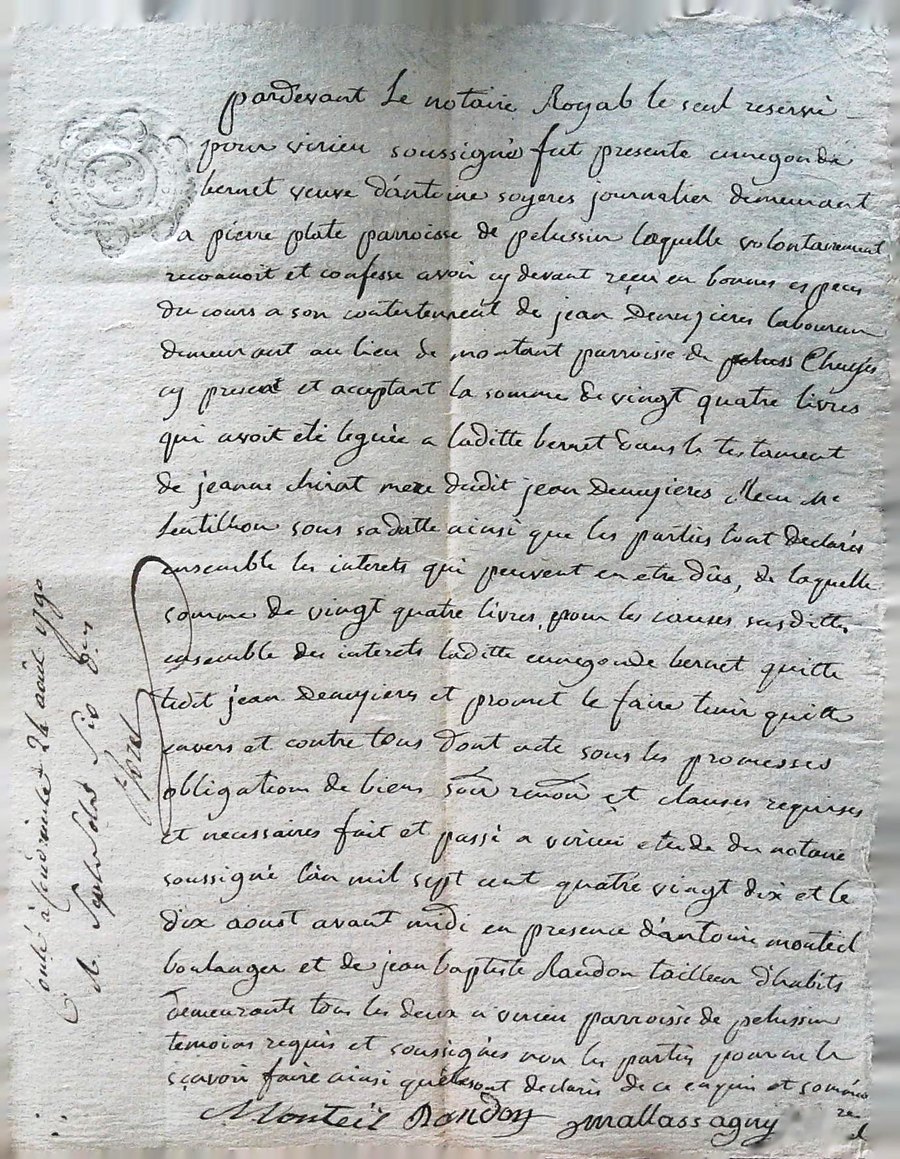 pardevant Le notaire Royal le seul reservé
pour virieu soussigné fut presente cunegonde
bernet veuve d'antoine soyeres journalier demeurant
a pierre plate parroisse de pelussin laquelle volontairement
reconnoit et confesse avoir cy devant reçu en bonnes especes
du cours a son contentement de jean Denuzieres laboureur
demeurant au lieu de montant parroisse de Chuyes
cy present et acceptant la somme de vingt quatre livres
qui avoit eté leguée a laditte bernet dans le testament
de jeanne chirat mere dudit jean Denuzieres Reçu Me
Lentillon sous sa datte ainsi que les parties l'ont declarés
ensemble les interets qui peuvent en etre dûs, de laquelle
somme de vingt quatre livres, pour les causes susdittes
ensemble des interets laditte cunegonde bernet quitte
ledit jean Denuzieres et promet le faire tenir quitte
envers et contre tous dont acte sous les promesses
obligations de biens et clauses requises
et necessaires fait et passé a virieu etude du notaire
soussigné l'an mil sept cent quatre vingt dix et le
dix aoust avant midi en presence d'antoine monteil
boulanger et de jean baptiste Randon tailleur d'habits
demeurants tous les deux a virieu parroisse de pelussin
temoins requis et soussignés non les parties pour ne le
sçavoir faire ainsi qu'elles ont declaré de ce enquis et sommées
Monteil Randon mallassagny
24 août 1790